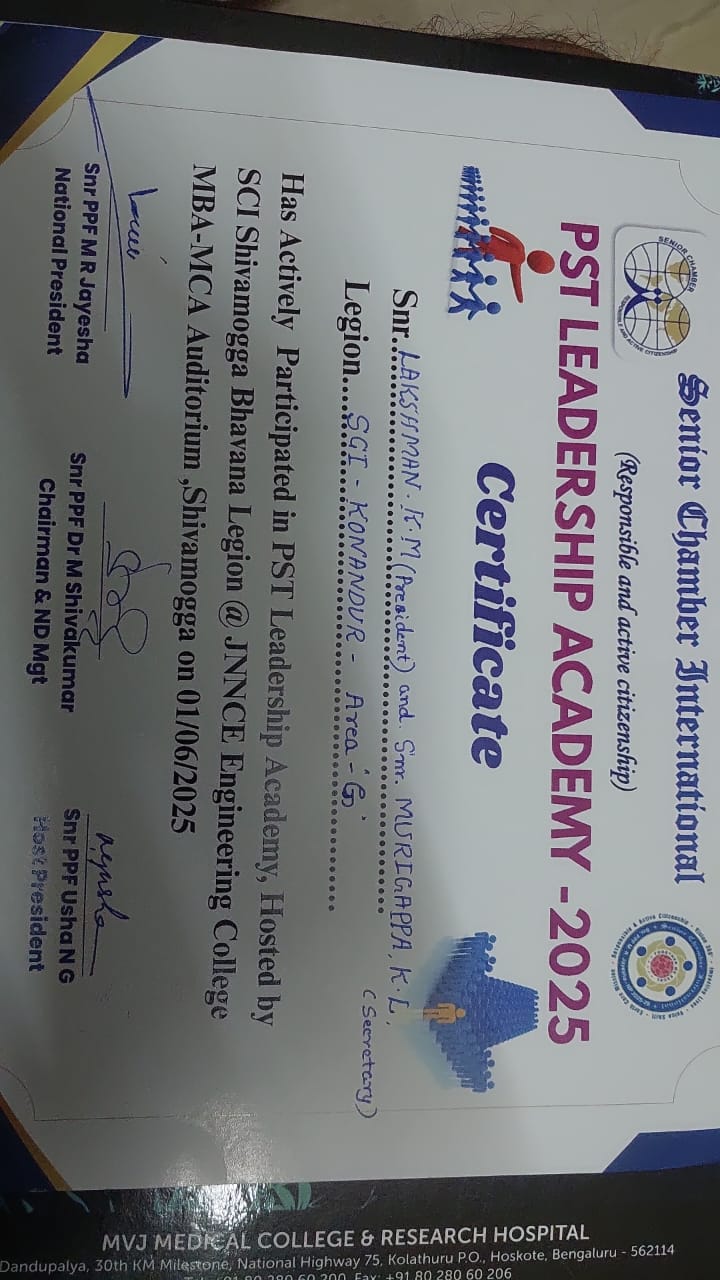 Senior Chamber International
(Responsible and active citizenship)
SENIOR CHAMBER
PST LEADERSHIP ACADEMY -2025
Certificate
Snr. LAKSHMAN. K. M (President) and Snr. MURIGAPPA. K. L. (Secretary)
Legion.... SCI - KONANDUR - Area - 'G'
Has Actively Participated in PST Leadership Academy, Hosted by
SCI Shivamogga Bhavana Legion @ JNNCE Engineering College
MBA-MCA Auditorium ,Shivamogga on 01/06/2025
Snr PPF M R Jayesha
National President
Snr PPF Dr M Shivakumar
Chairman & ND Mgt
Snr PPF Usha N G
Host President
MVJ MEDICAL COLLEGE & RESEARCH HOSPITAL
Dandupalya, 30th KM Milestone, National Highway 75, Kolathuru P.O., Hoskote, Bengaluru - 562114
Fax: +91 80 280 60 206